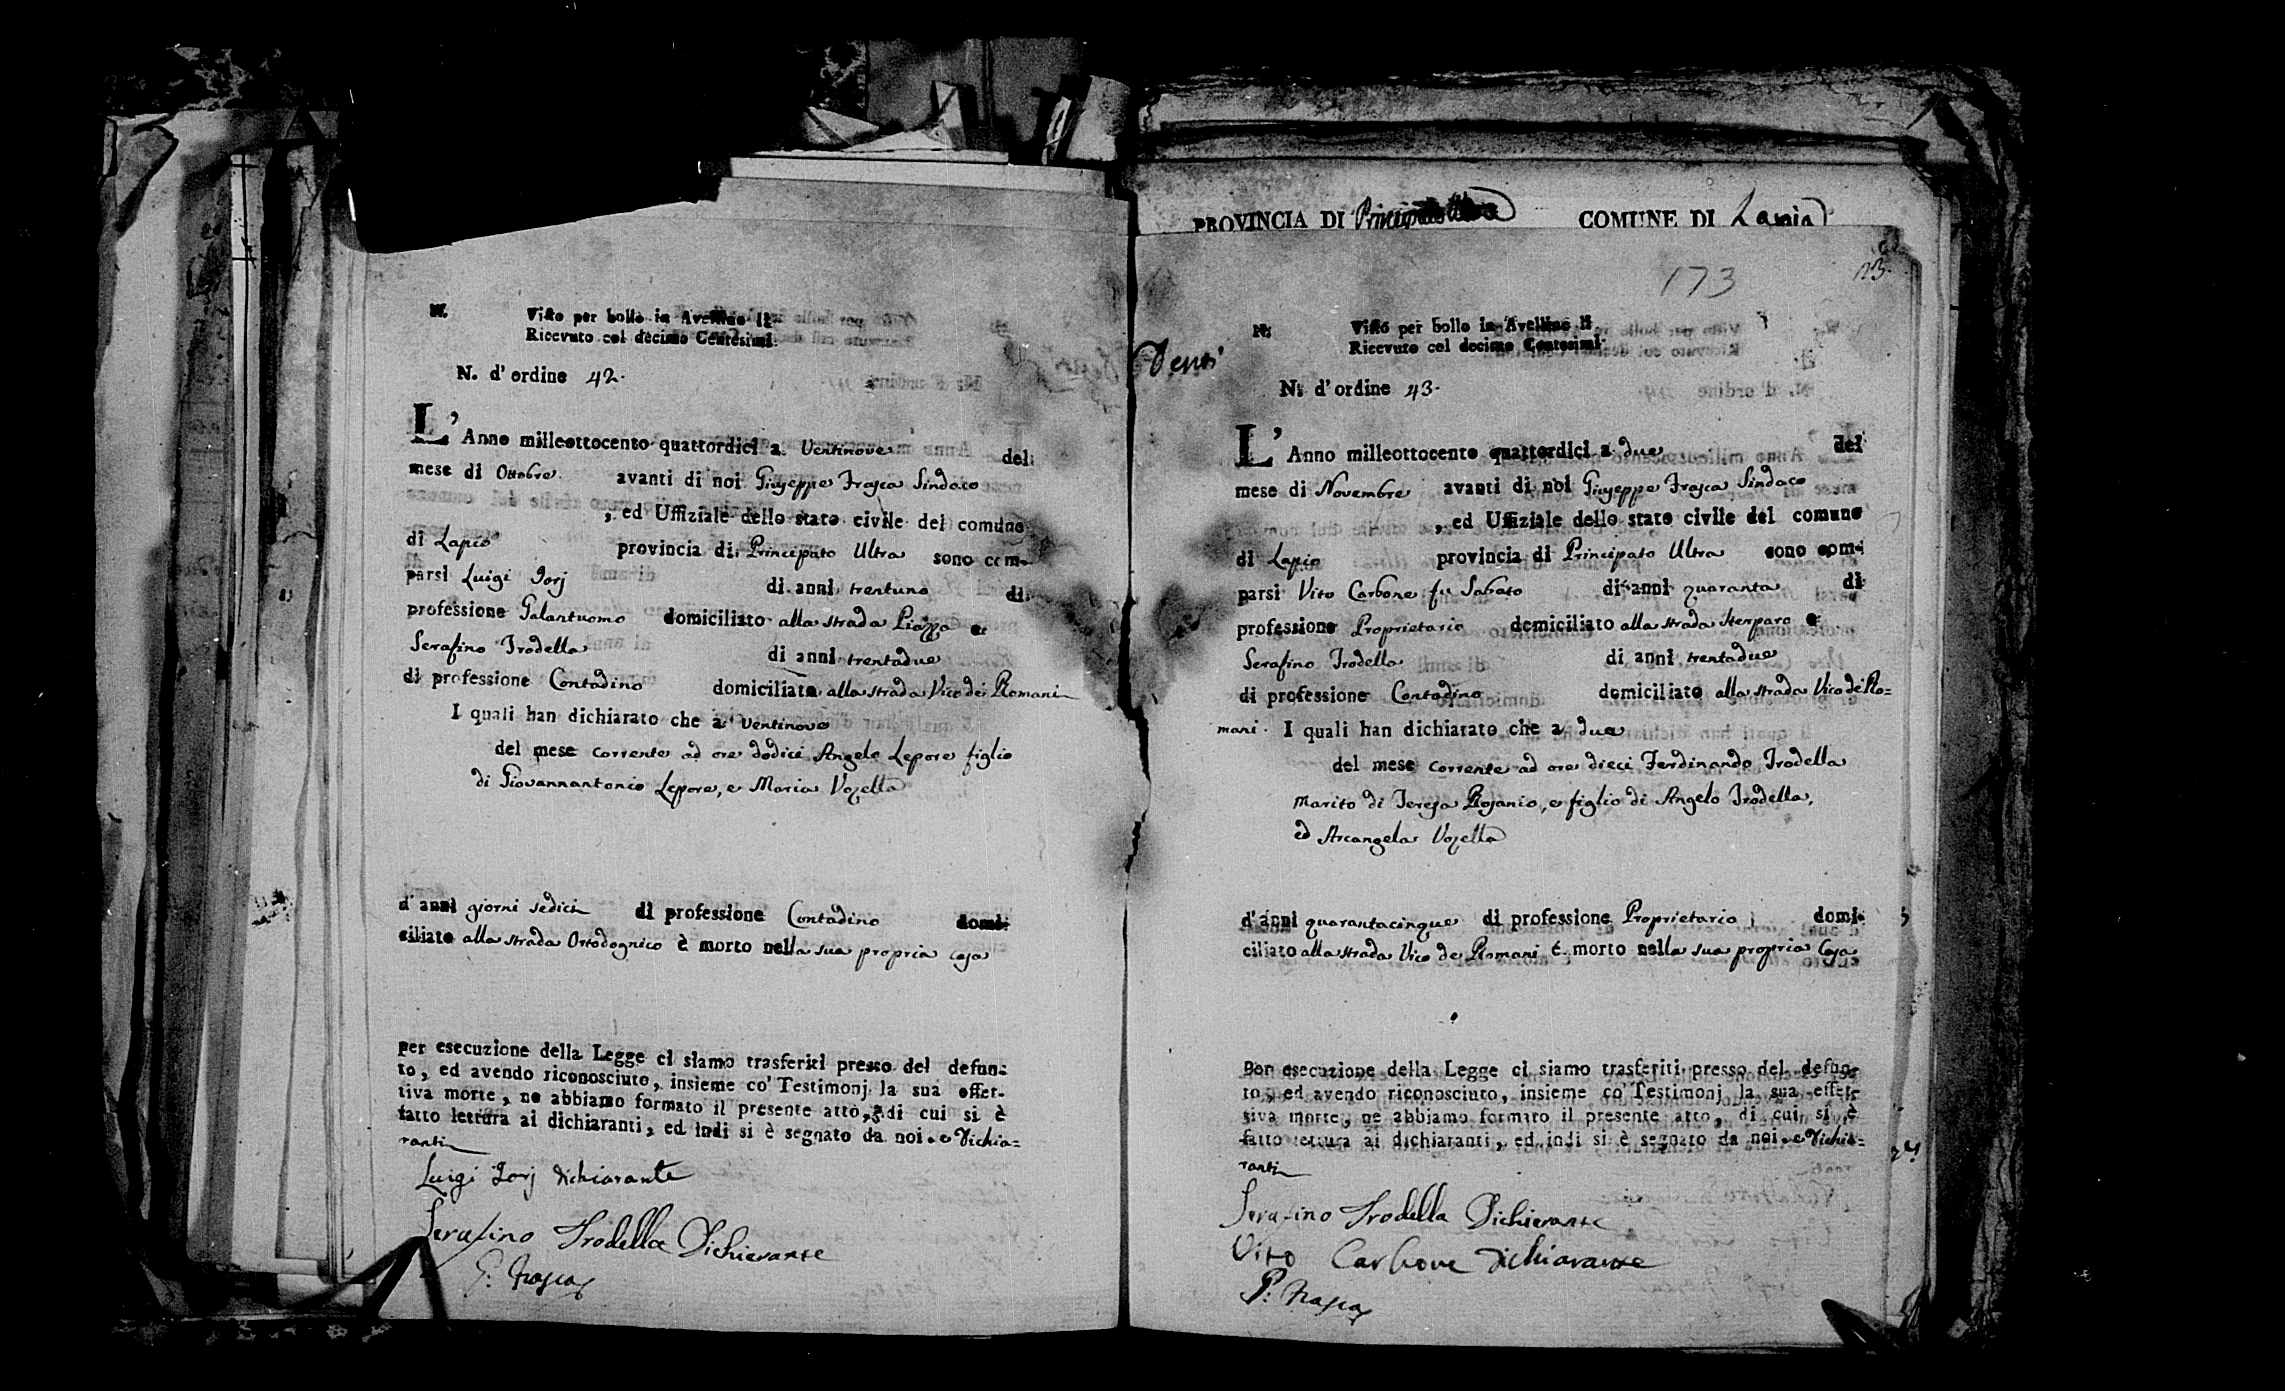 N.
Visto per bollo in Avellino li
Ricevuto col decimo Centesimi
N. d'ordine 42.
L'Anno milleottocento quattordici a Ventinove del
mese di Ottobre avanti di noi Giuseppe Frasca Sindaco
, ed Uffiziale dello stato civile del comune
di Lapio provincia di Principato Ultra sono com-
parsi Luigi Jorj di anni trentuno di
professione Galantuomo domiciliato alla strada Piazza e
Serafino Trodella di anni trentadue
di professione Contadino domiciliato alla strada Vico dei Romani
I quali han dichiarato che a ventinove
del mese corrente ad ore dodici Angelo Lepore figlio
di Giovannantonio Lepore, e Maria Vozella
d'anni giorni sedici di professione Contadino domi-
ciliato alla strada Ortodognico è morto nella sua propria casa
per esecuzione della Legge ci siamo trasferiti presso del defun-
to, ed avendo riconosciuto, insieme co' Testimonj la sua effet-
tiva morte, ne abbiamo formato il presente atto, di cui si è
fatto lettura ai dichiaranti, ed indi si è segnato da noi e Dichia=
ranti
Luigi Jorj dichiarante
Serafino Trodella Dichiarante
G: Frasca
PROVINCIA DI Principato Ultra COMUNE DI Lapio
173
123.
N:
Visto per bollo in Avellino li
Ricevuto col decimo Centesimi
N: d'ordine 43.
L'Anno milleottocento quattordici a due del
mese di Novembre avanti di noi Giuseppe Frasca Sindaco
, ed Uffiziale dello stato civile del comune
di Lapio provincia di Principato Ultra sono com-
parsi Vito Carbone fu Sabato di anni quaranta di
professione Proprietario domiciliato alla strada Sterparo e
Serafino Trodella di anni trentadue
di professione Contadino domiciliato alla strada Vico de' Ro=
mani. I quali han dichiarato che a due
del mese corrente ad ore dieci Ferdinando Trodella
marito di Teresa Rosanio, e figlio di Angelo Trodella,
ed Arcangela Vozella
d'anni quarantacinque di professione Proprietario domi-
ciliato alla strada Vico de Romani è morto nella sua propria Casa
Per esecuzione della Legge ci siamo trasferiti presso del defun-
to, ed avendo riconosciuto, insieme co' Testimonj la sua effet-
tiva morte, ne abbiamo formato il presente atto, di cui si è
fatto lettura ai dichiaranti, ed indi si è segnato da noi e Dichia=
ranti
Serafino Trodella Dichiarante
Vito Carbone dichiarante
G: Frasca